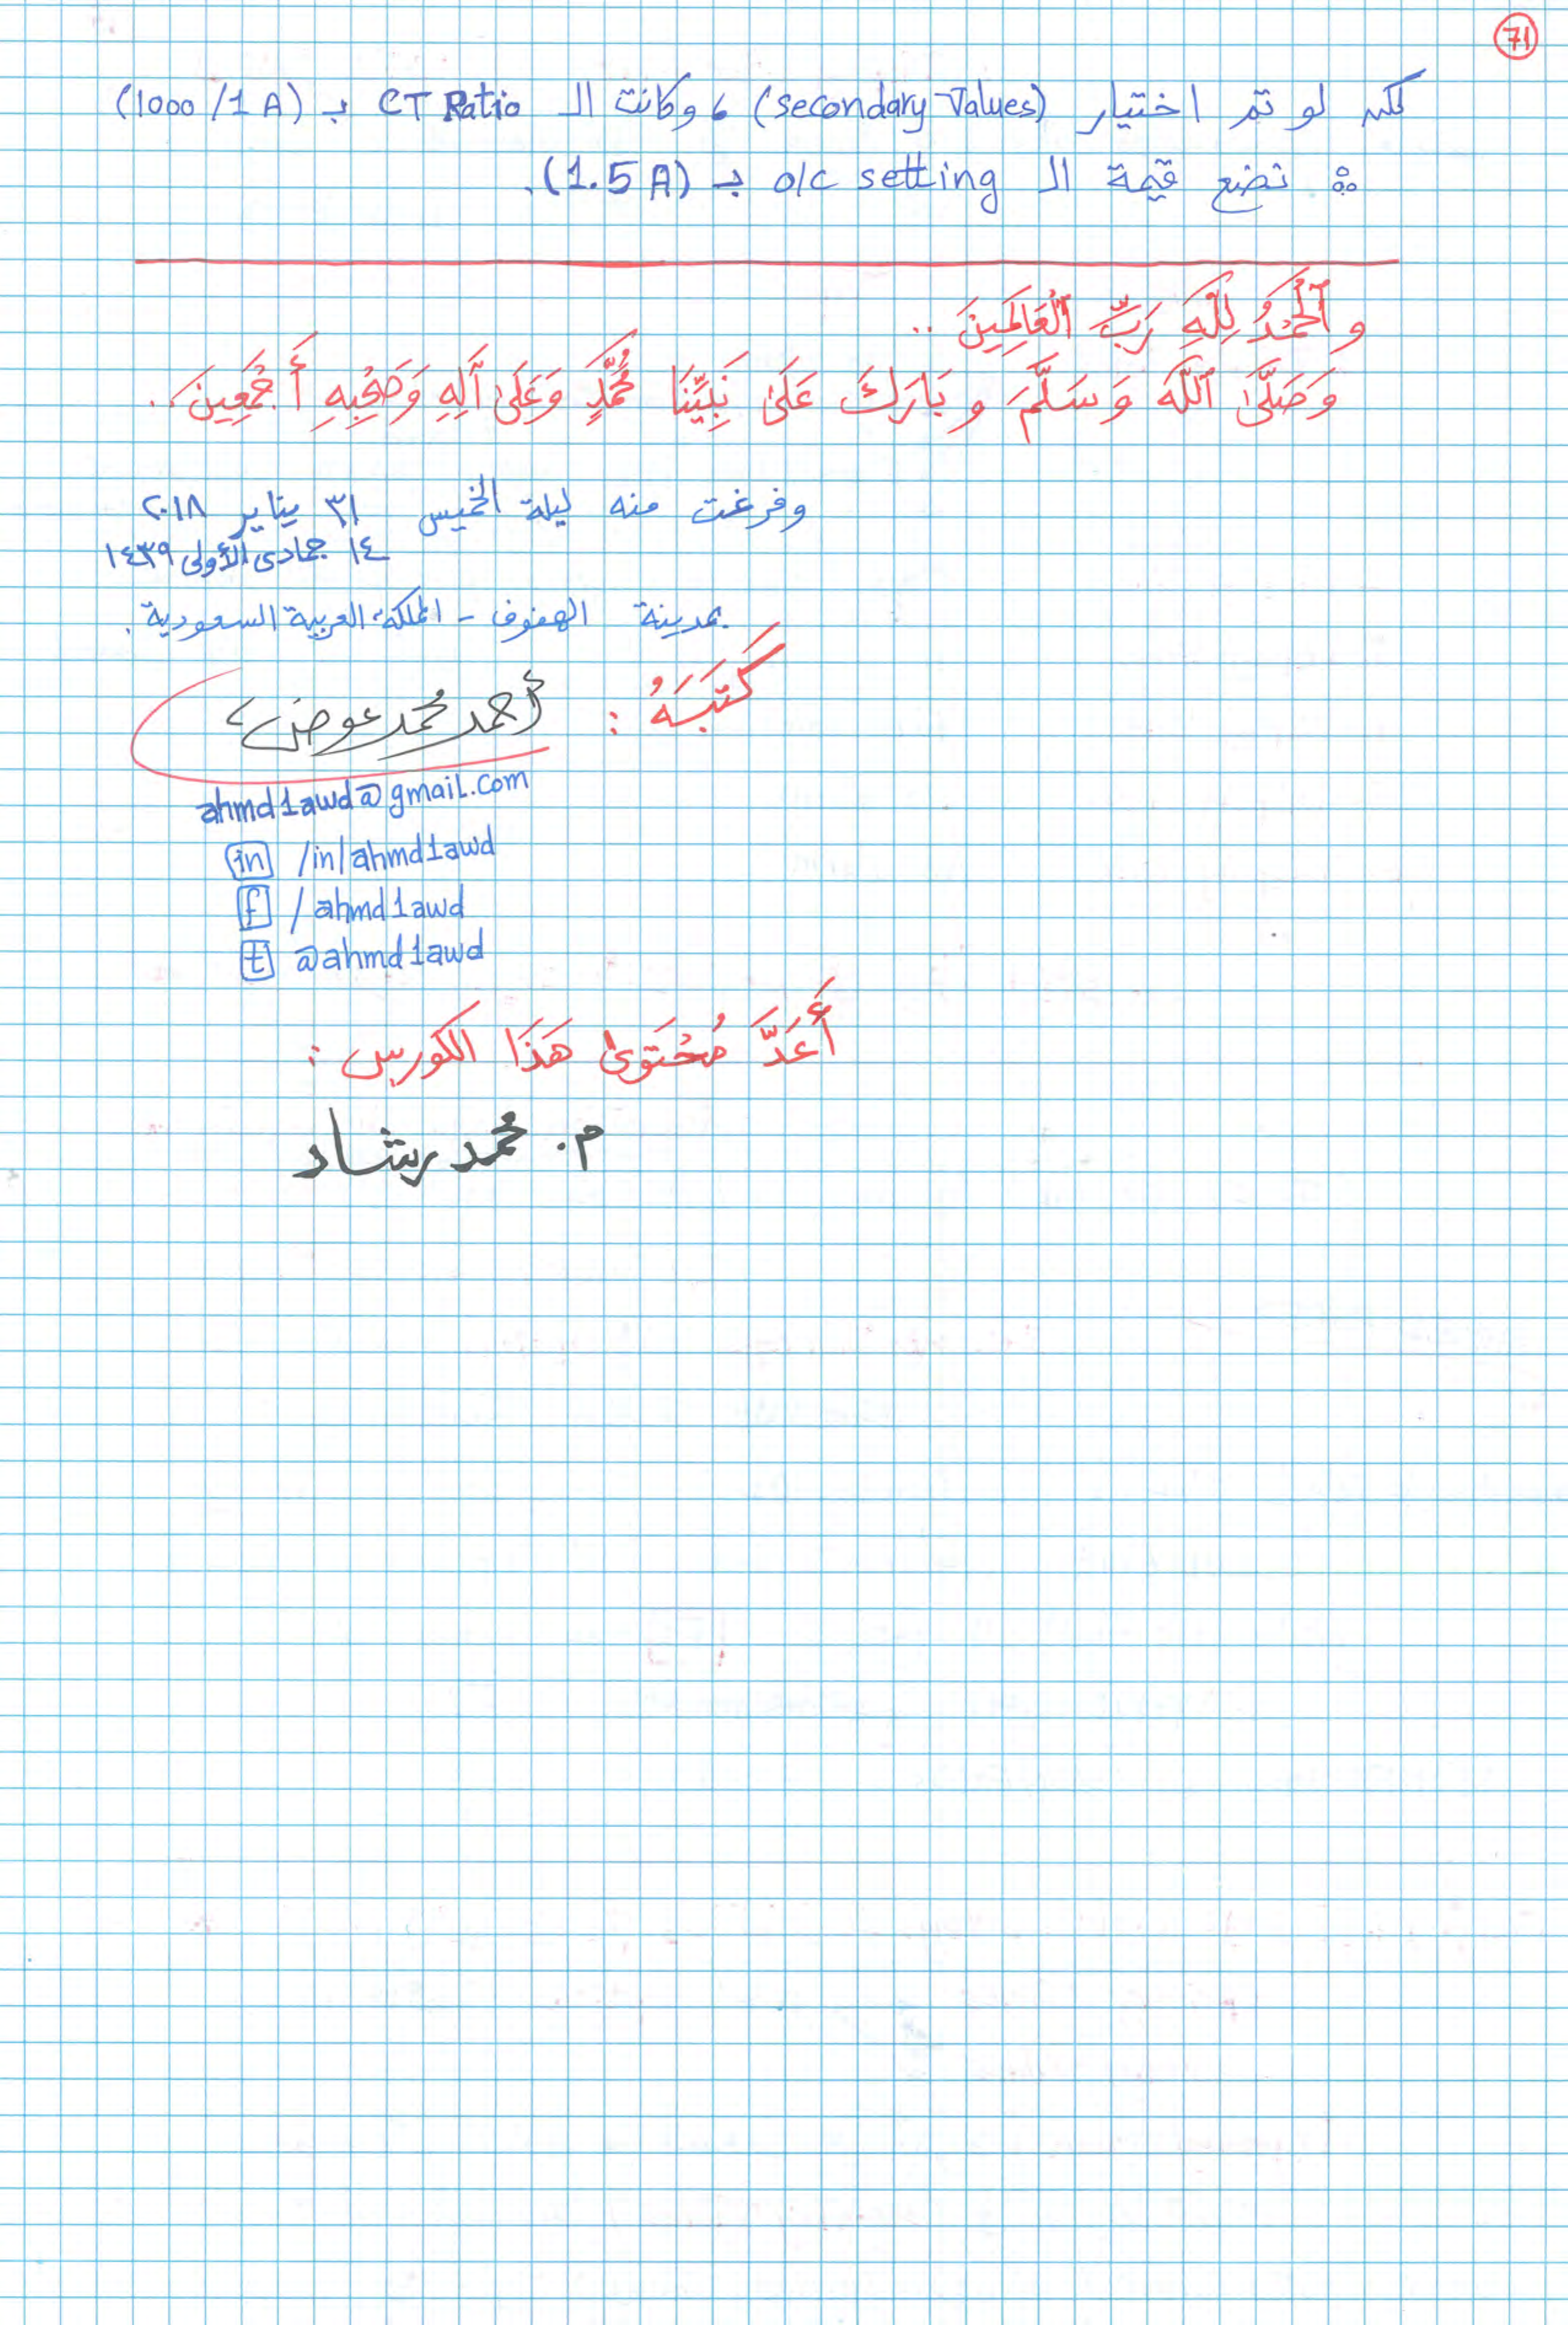 71
لكن لو تم اختيار (secondary Values) ، وكانت الـ CT Ratio بـ (1000/1 A)
∴ نضع قيمة الـ o/c setting بـ (1.5 A).
و ٱلْحَمْدُ لِلَّهِ رَبِّ ٱلْعَالَمِينَ ..
وَصَلَّىٰ ٱللَّهُ وَسَلَّمَ وبَارَكَ عَلَىٰ نَبِيِّنَا مُحَمَّدٍ وَعَلَىٰ آلِهِ وَصَحْبِهِ أَجْمَعِينَ ..
وفرغت منه ليلة الخميس ٣١ يناير ٢٠١٨
١٤ جمادى الأولى ١٤٣٩
بمدينة الهفوف - المملكة العربية السعودية .
كَتَبَهُ :
أحمد محمد عوض
ahmd1awd@gmail.com
in /in/ahmd1awd
f /ahmd1awd
t @ahmd1awd
أَعَدَّ مُحْتَوىٰ هَذَا الكورس :
م. محمد رشاد